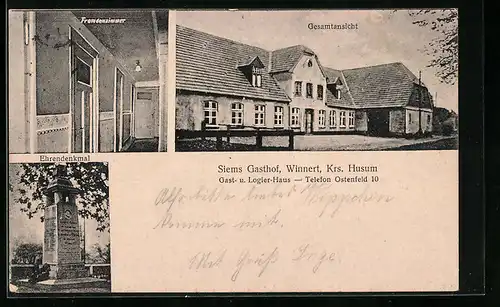 Fremdenzimmer
Gesamtansicht
Ehrendenkmal
Siems Gasthof, Winnert, Krs. Husum
Gast- u. Logier-Haus — Telefon Ostenfeld 10
kommen mit.
Mit Gruß